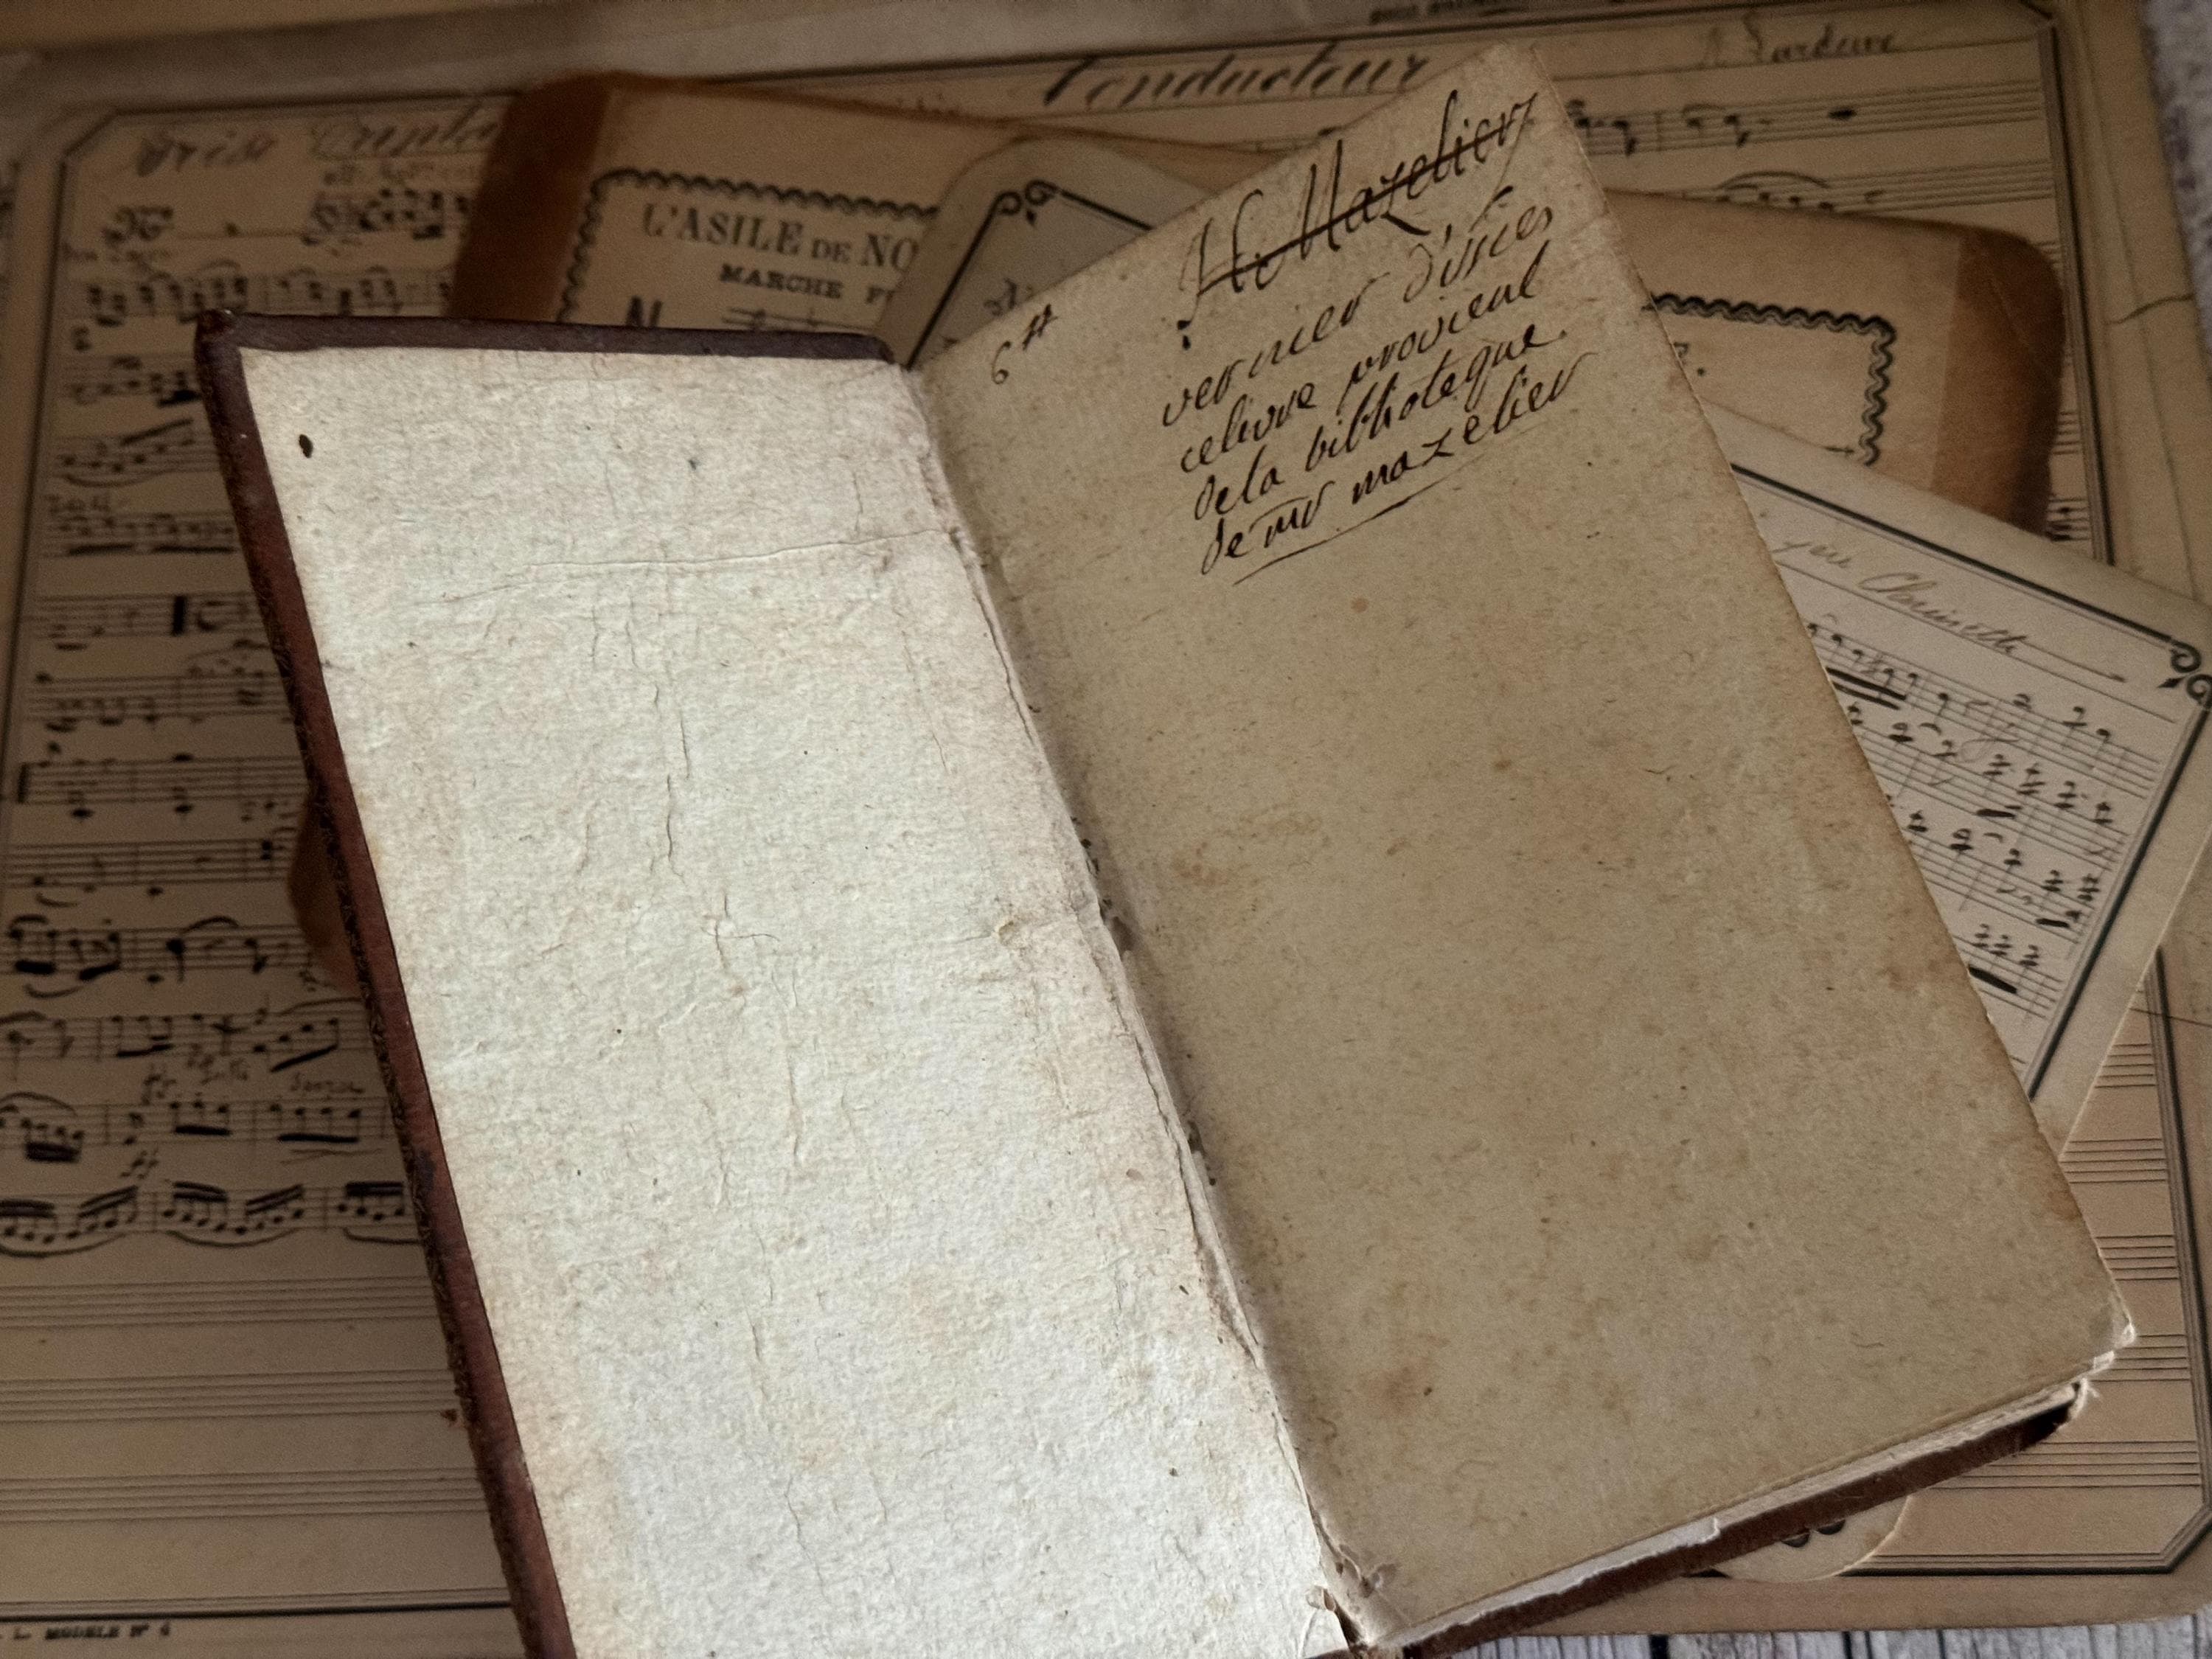 Conducteur
L'ASILE DE NO
MARCHE
6#
H. Mazelier
vernier d'isles
celivre provient
dela biblioteque
de mr mazelier
pour Clarinette
L. MODELE Nº 4